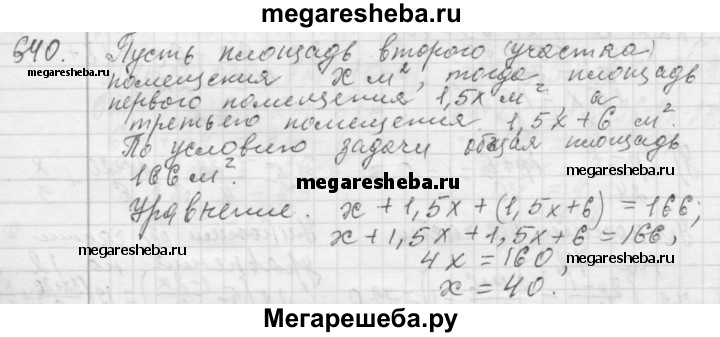 megaresheba.ru
640. Пусть площадь второго (участка)
помещения x м², тогда площадь
megaresheba.ru megaresheba.ru
первого помещения 1,5x м², а
третьего помещения 1,5x + 6 м².
По условию задачи общая площадь
166 м².
megaresheba.ru
Уравнение. x + 1,5x + (1,5x+6) = 166;
x + 1,5x + 1,5x + 6 = 166,
megaresheba.ru megaresheba.ru
4x = 160,
x = 40.
Мегарешеба.ру